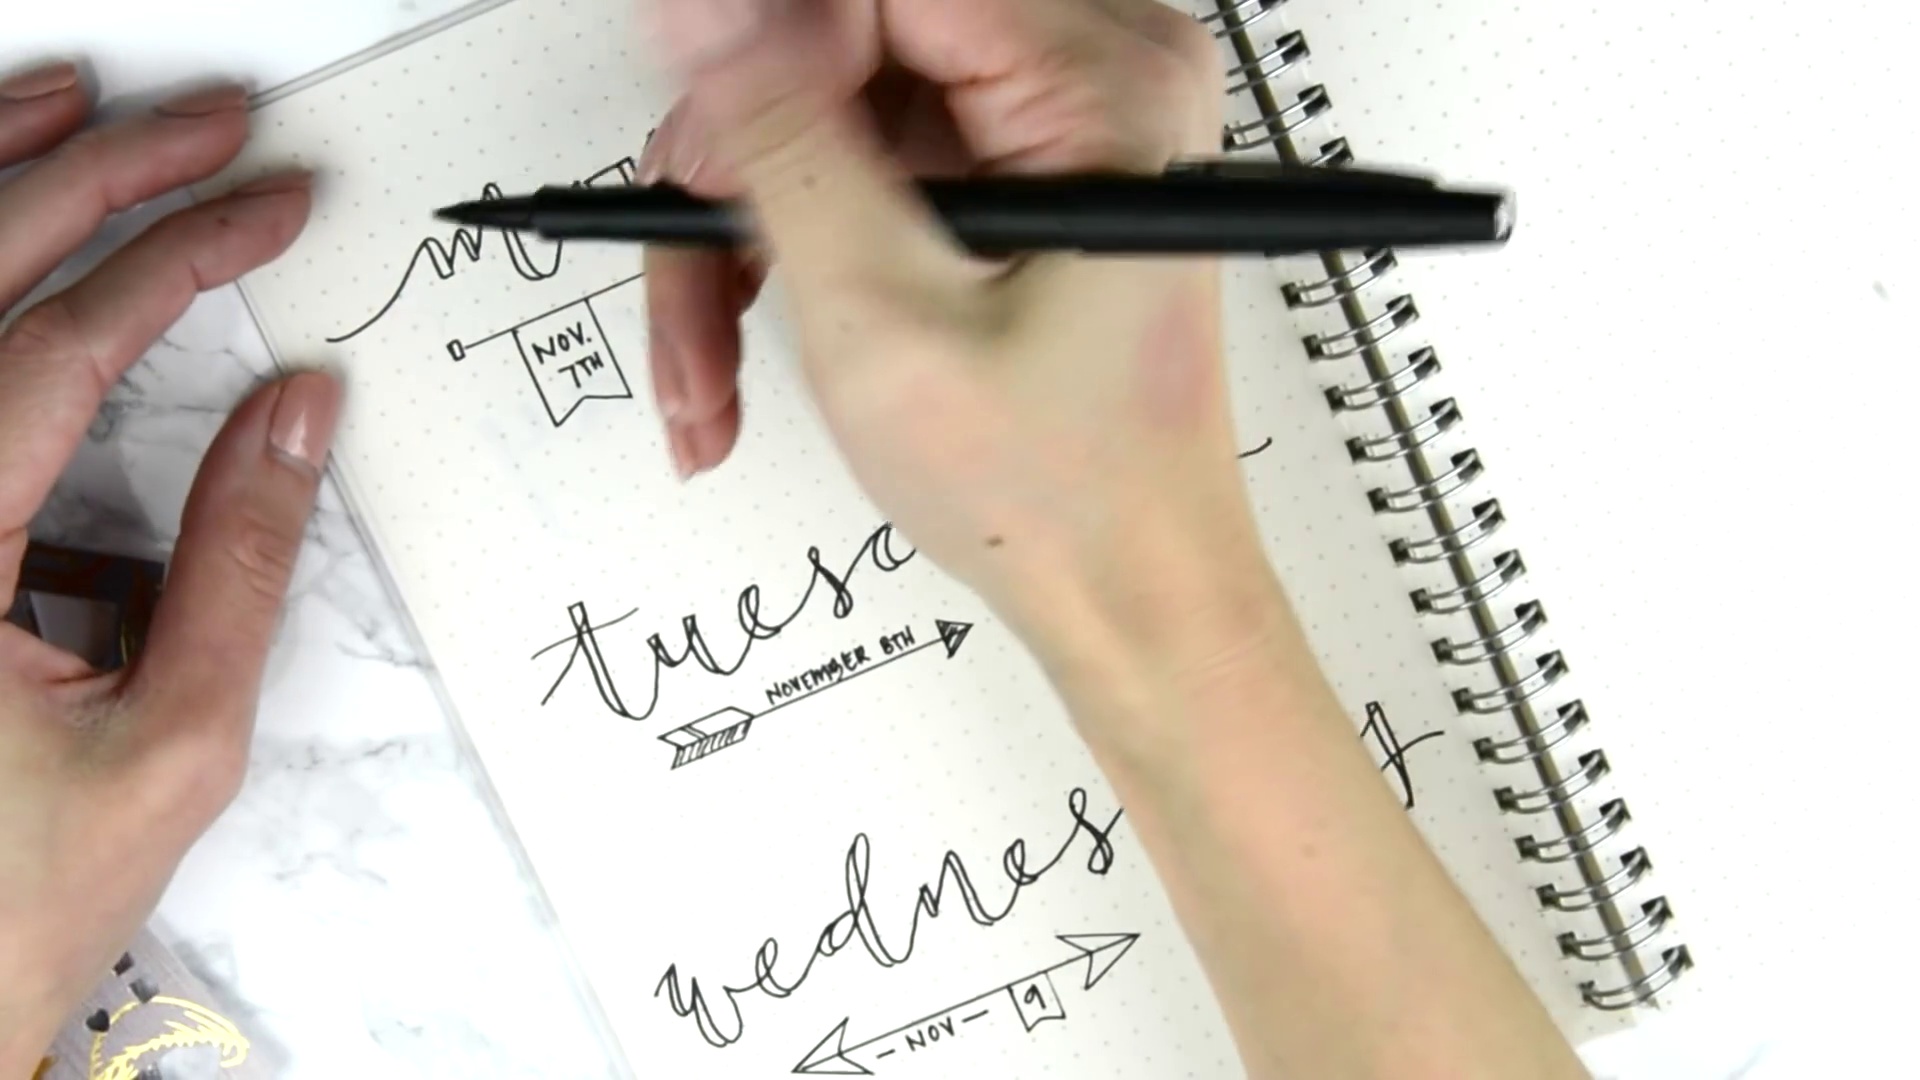 m
NOV.
7TH
tuesd
NOVEMBER 8TH
wednes
- NOV - 9